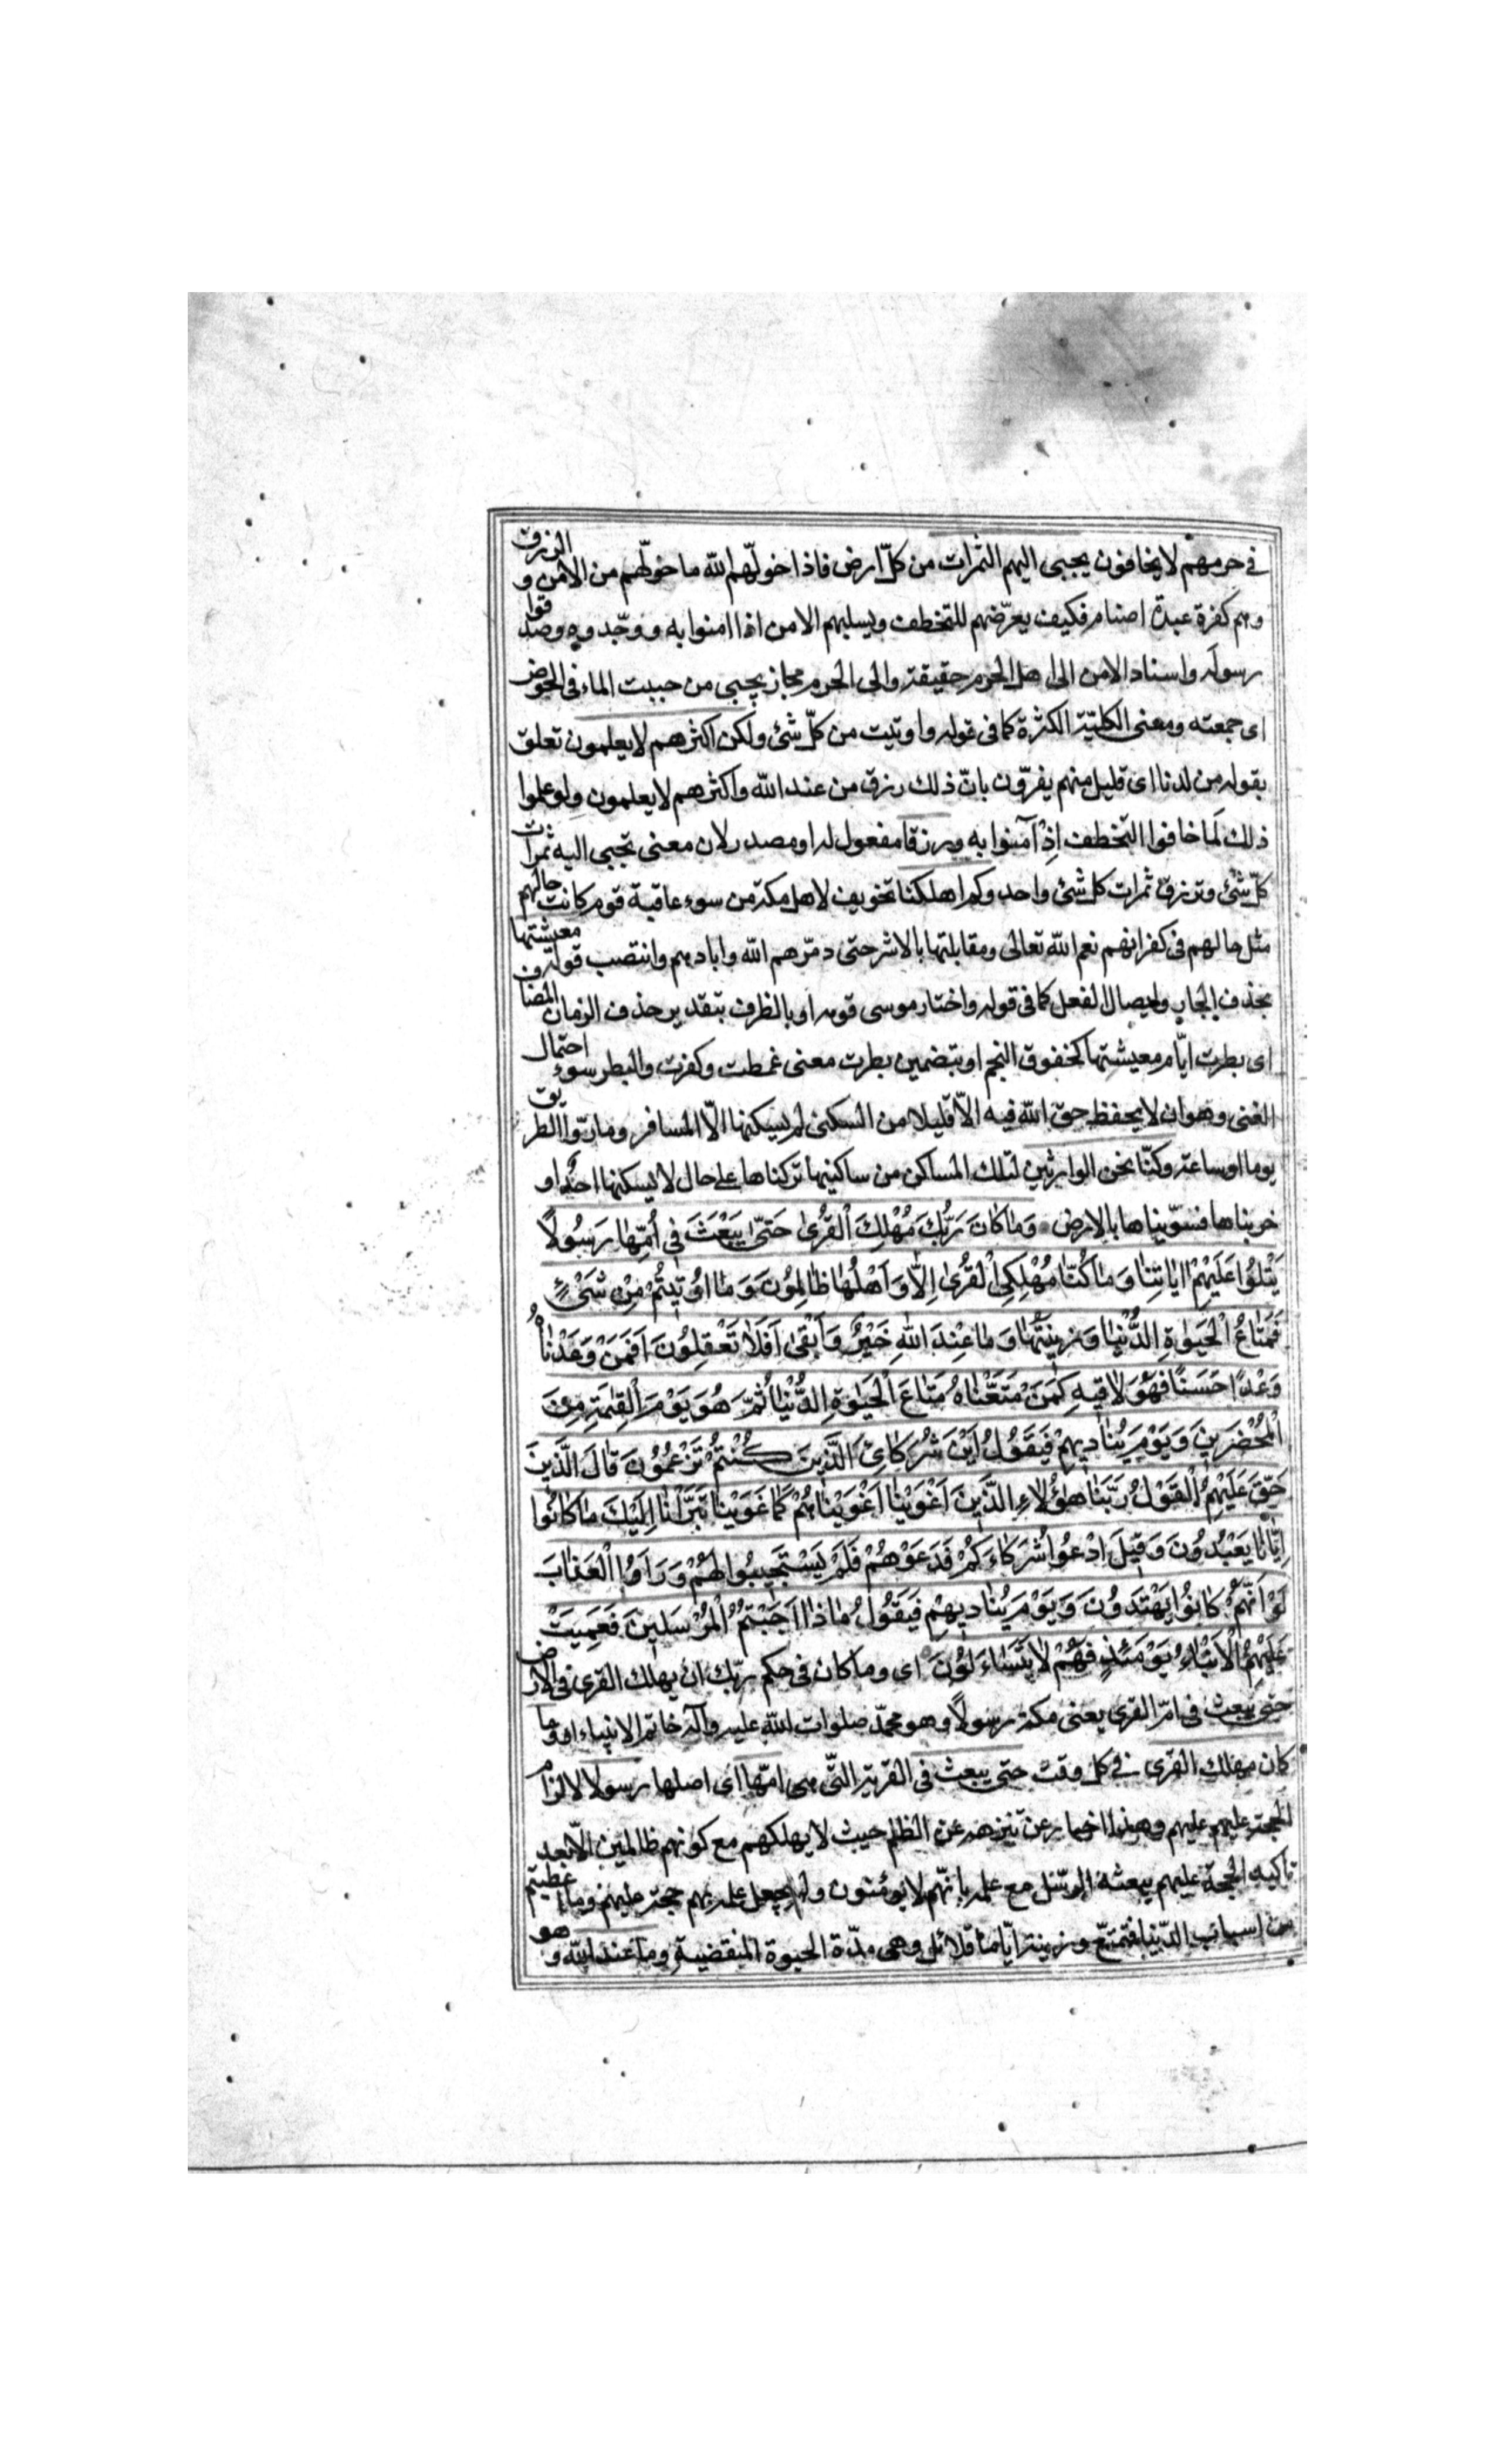 في حرمهم لا يخافون يجبى اليهم الثمرات من كلّ ارض فاذا خولّهم الله ما خولّهم من الامن و الرزق
وهم كفرة عبدة اصنام فكيف يعرّضهم للتخطف ويسلبهم الامن اذا امنوا به ووحّدوه وصدقوا
رسوله واسناد الامن الى اهل الحرم حقيقة والى الحرم مجاز يجبى من جبيت الماء في الحوض
اى جمعته ومعنى الكليّة الكثرة كما في قوله واوتيت من كلّ شئ ولكن اكثرهم لا يعلمون تعلق
بقوله من لدنا اى قليل منهم يقرّون بانّ ذلك رزق من عند الله واكثرهم لا يعلمون ولو علموا
ذلك لَما خافوا التخطف اِذْ آمنوا به ورزقا مفعول له او مصدر لان معنى تجبى اليه ثمرات
كلّ شئ وترزق ثمرات كل شئ واحد وكم اهلكنا تخويف لاهل مكة من سوء عاقبة قوم كانت حالهم
مثل حالهم في كفرانهم نعم الله تعالى ومقابلتها بالاشر حتى دمّرهم الله وابادهم وانتصب قوله معيشتها
بحذف الجار وايصال الفعل كما في قوله واختار موسى قومه او بالظرف بتقدير حذف الزمان المضاف
اى بطرت ايّام معيشتها كخفوق النجم او بتضمين بطرت معنى غمطت وكفرت والبطر سوء احتمال
الغنى وهو ان لا يحفظ حق الله فيه الاّ قليلا من السكنى لم يسكنها الاّ المسافر ومارّوا الطريق
يوما او ساعة وكنّا نحن الوارثين لتلك المساكن من ساكنيها تركناها على حال لا يسكنها احدٌ او
خربناها فسوّيناها بالارض وَمٰا كٰانَ رَبُّكَ مُهْلِكَ الْقُرىٰ حَتّىٰ يَبْعَثَ فِي اُمِّهٰا رَسُولًا
يَتْلُوا عَلَيْهِمْ اٰيٰاتِنٰا وَمٰا كُنّٰا مُهْلِكِي الْقُرىٰ اِلّٰا وَاَهْلُهٰا ظٰالِمُونَ وَمٰا اُوتِيتُمْ مِنْ شَيْءٍ
فَمَتٰاعُ الْحَيٰوةِ الدُّنْيٰا وَزِينَتُهٰا وَمٰا عِنْدَ اللهِ خَيْرٌ وَاَبْقىٰ اَفَلٰا تَعْقِلُونَ اَفَمَنْ وَعَدْنٰاهُ
وَعْداً حَسَنًا فَهُوَ لٰاقِيهِ كَمَنْ مَتَعّْنٰاهُ مَتٰاعَ الْحَيٰوةِ الدُّنْيٰا ثُمَّ هُوَ يَوْمَ الْقِيٰمَةِ مِنَ
الْمُحْضَرِينَ وَيَوْمَ يُنٰادِيهِمْ فَيَقُولُ اَيْنَ شُرَكٰاىَٔ الَّذِينَ كُنْتُمْ تَزْعُمُونَ قٰالَ الَّذِينَ
حَقَّ عَلَيْهِمُ الْقَوْلُ رَبَّنٰا هٰؤُلٰاءِ الَّذِينَ اَغْوَيْنٰا اَغْوَيْنٰاهُمْ كَمٰا غَوَيْنٰا تَبَرَّأْنٰا اِلَيْكَ مٰا كٰانُوا
اِيّٰانٰا يَعْبُدُونَ وَقِيلَ ادْعُوا شُرَكٰاءَكُمْ فَدَعَوْهُمْ فَلَمْ يَسْتَجِيبُوا لَهُمْ وَرَاَوُا الْعَذٰابَ
لَوْ اَنَّهُمْ كٰانُوا يَهْتَدُونَ وَيَوْمَ يُنٰادِيهِمْ فَيَقُولُ مٰاذٰا اَجَبْتُمُ الْمُرْسَلِينَ فَعَمِيَتْ
عَلَيْهِمُ الْاَنْبٰاءُ يَوْمَئِذٍ فَهُمْ لٰا يَتَسٰاءَلُونَ اى وما كان في حكم ربّك ان يهلك القرى في الارض
حتى يبعث في امّ القرى يعنى مكة رسولًا وهو محمّد صلوات الله عليه وآله خاتم الانبياء او وما
كان مهلك القرى في كل وقت حتى يبعث في القرية التّى هى امّها اى اصلها رسولا لالزام
الحجة عليهم وهذا اخبار عن تنزهه عن الظلم حيث لا يهلكهم مع كونهم ظالمين الاّ بعد
تاكيد الحجة عليهم ببعثة الرسل مع علمه بانّهم لا يؤمنون ولم يجعل علمه بهم حجة عليهم وما اعطيتم
من اسباب الدّنيا فتمتّع وزينة ايّاما قلائل وهى مدّة الحيوة المنقضية وما عند الله و هو